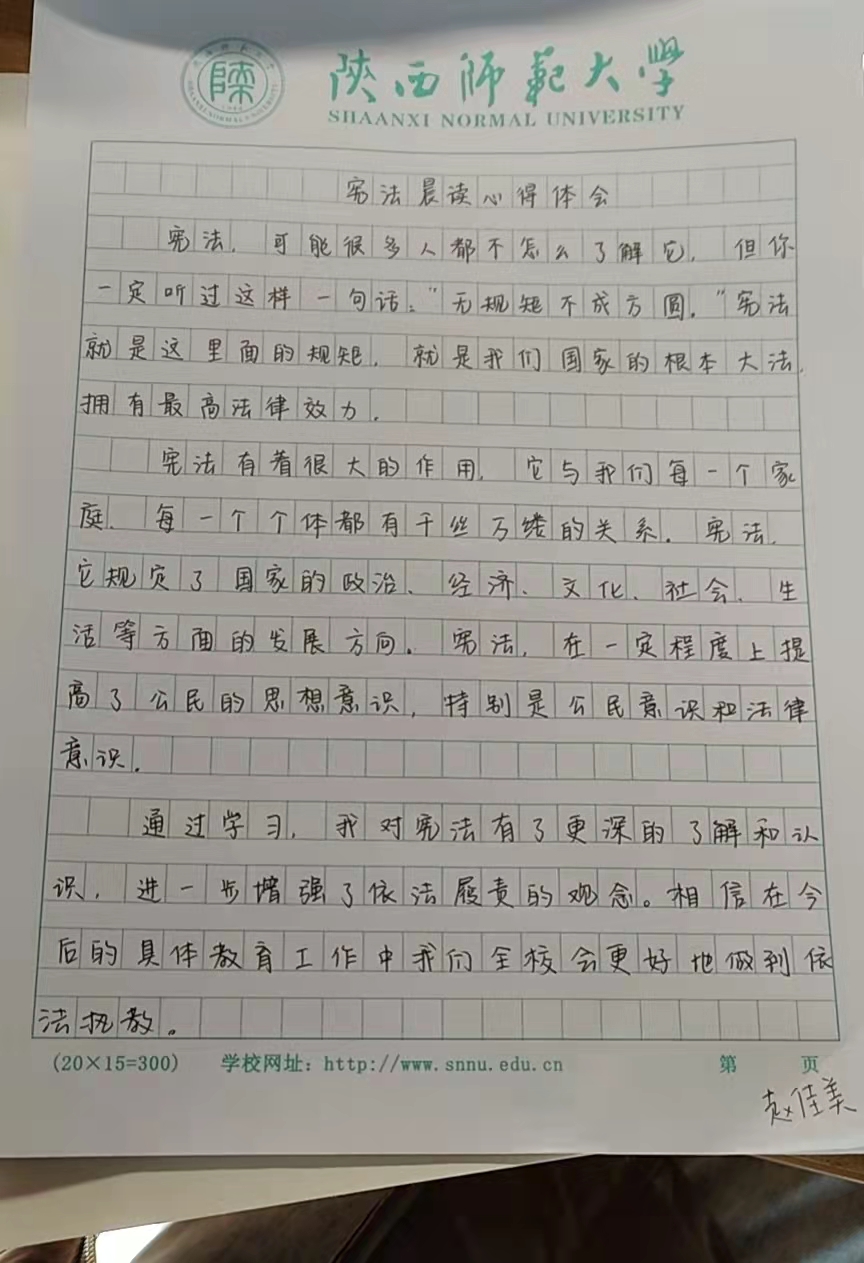 陕西师范大学
SHAANXI NORMAL UNIVERSITY
宪法晨读心得体会
宪法，可能很多人都不怎么了解它，但你
一定听过这样一句话："无规矩不成方圆，"宪法
就是这里面的规矩，就是我们国家的根本大法，
拥有最高法律效力，
宪法有着很大的作用，它与我们每一个家
庭、每一个个体都有千丝万缕的关系。宪法，
它规定了国家的政治、经济、文化、社会、生
活等方面的发展方向。宪法，在一定程度上提
高了公民的思想意识，特别是公民意识和法律
意识。
通过学习，我对宪法有了更深的了解和认
识，进一步增强了依法履责的观念。相信在今
后的具体教育工作中我们全校会更好地做到依
法执教。
(20×15=300) 学校网址：http://www.snnu.edu.cn 第 页
赵佳美